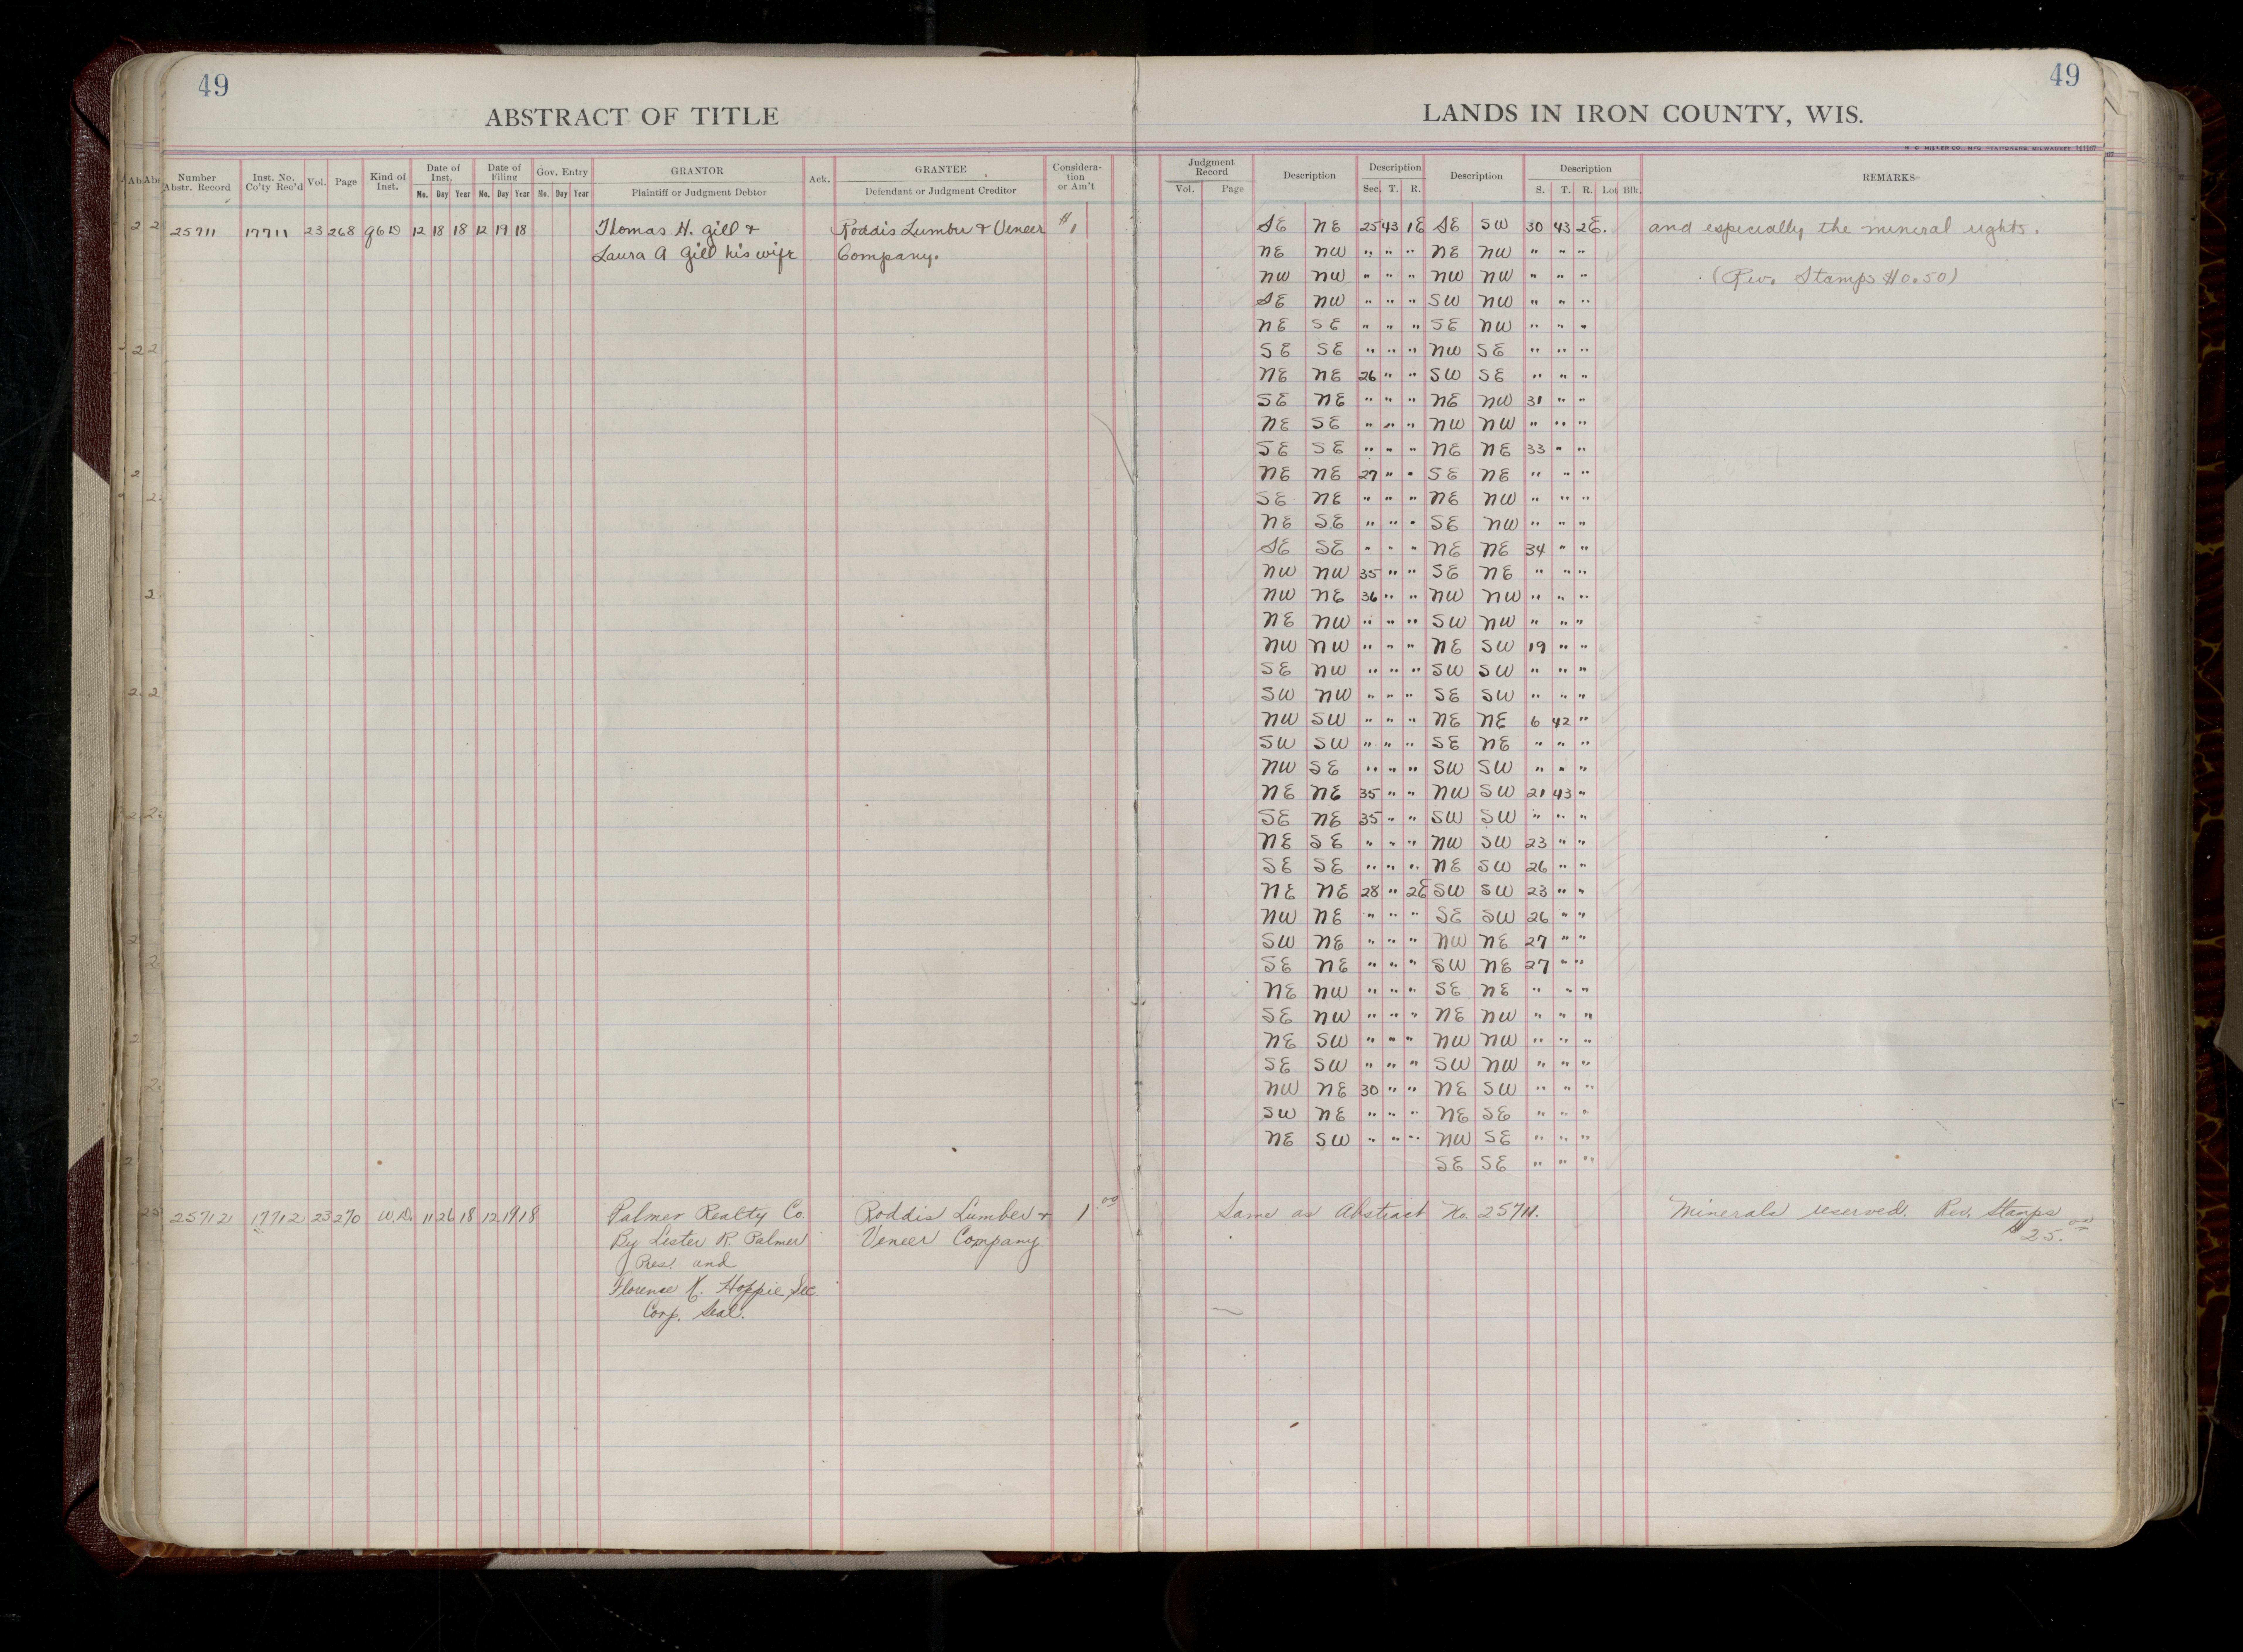 49
49
ABSTRACT OF TITLE
LANDS IN IRON COUNTY, WIS.
Number Abstr. Record | Inst. No. Co'ty Rec'd | Vol. | Page | Kind of Inst. | Date of Inst. Mo. Day Year | Date of Filing Mo. Day Year | Gov. Entry Mo. Day Year | GRANTOR Plaintiff or Judgment Debtor | Ack. | GRANTEE Defendant or Judgment Creditor | Consideration or Am't | Judgment Record Vol. Page | Description | Description Sec. T. R. | Description | Description S. T. R. Lot Blk. | REMARKS
25711 17711 23 268 12 18 18 12 19 18 Thomas H. Gill & Roddis Lumber & Veneer $1 SE NE 25 43 1E SE SW 30 43 2E. and especially the mineral rights.
Laura A Gill his wife Company. NE NW " " " NE NW " " "
NW NW " " " NW NW " " " (Rev. Stamps $0.50)
SE NW " " " SW NW " " "
NE SE " " " SE NW " " "
SE SE " " " NW SE " " "
NE NE 26 " " SW SE " " "
SE NE " " " NE NW 31 " "
NE SE " " " NW NW " " "
SE SE " " " NE NE 33 " "
NE NE 27 " " SE NE " " "
SE NE " " " NE NW " " "
NE SE " " " SE NW " " "
SE SE " " " NE NE 34 " "
NW NW 35 " " SE NE " " "
NW NE 36 " " NW NW " " "
NE NW " " " SW NW " " "
NW NW " " " NE SW 19 " "
SE NW " " " SW SW " " "
SW NW " " " SE SW " " "
NW SW " " " NE NE 6 42 "
SW SW " " " SE NE " " "
NW SE " " " SW SW " " "
NE NE 35 " " NW SW 21 43 "
SE NE 35 " " SW SW " " "
NE SE " " " NW SW 23 " "
SE SE " " " NE SW 26 " "
NE NE 28 " 2E SW SW 23 " "
NW NE " " " SE SW 26 " "
SW NE " " " NW NE 27 " "
SE NE " " " SW NE 27 " "
NE NW " " " SE NE " " "
SE NW " " " NE NW " " "
NE SW " " " NW NW " " "
SE SW " " " SW NW " " "
NW NE 30 " " NE SW " " "
SW NE " " " NE SE " " "
NE SW " " " NW SE " " "
SE SE " " "
25712 17712 23 270 W.D. 11 26 18 12 19 18 Palmer Realty Co. Roddis Lumber & 1.00 Same as Abstract No. 25711. Minerals reserved. Rev. Stamps
By Lester R. Palmer Veneer Company $25.00
Pres. and
Florence K. Hoppie, Sec.
Corp. Seal.